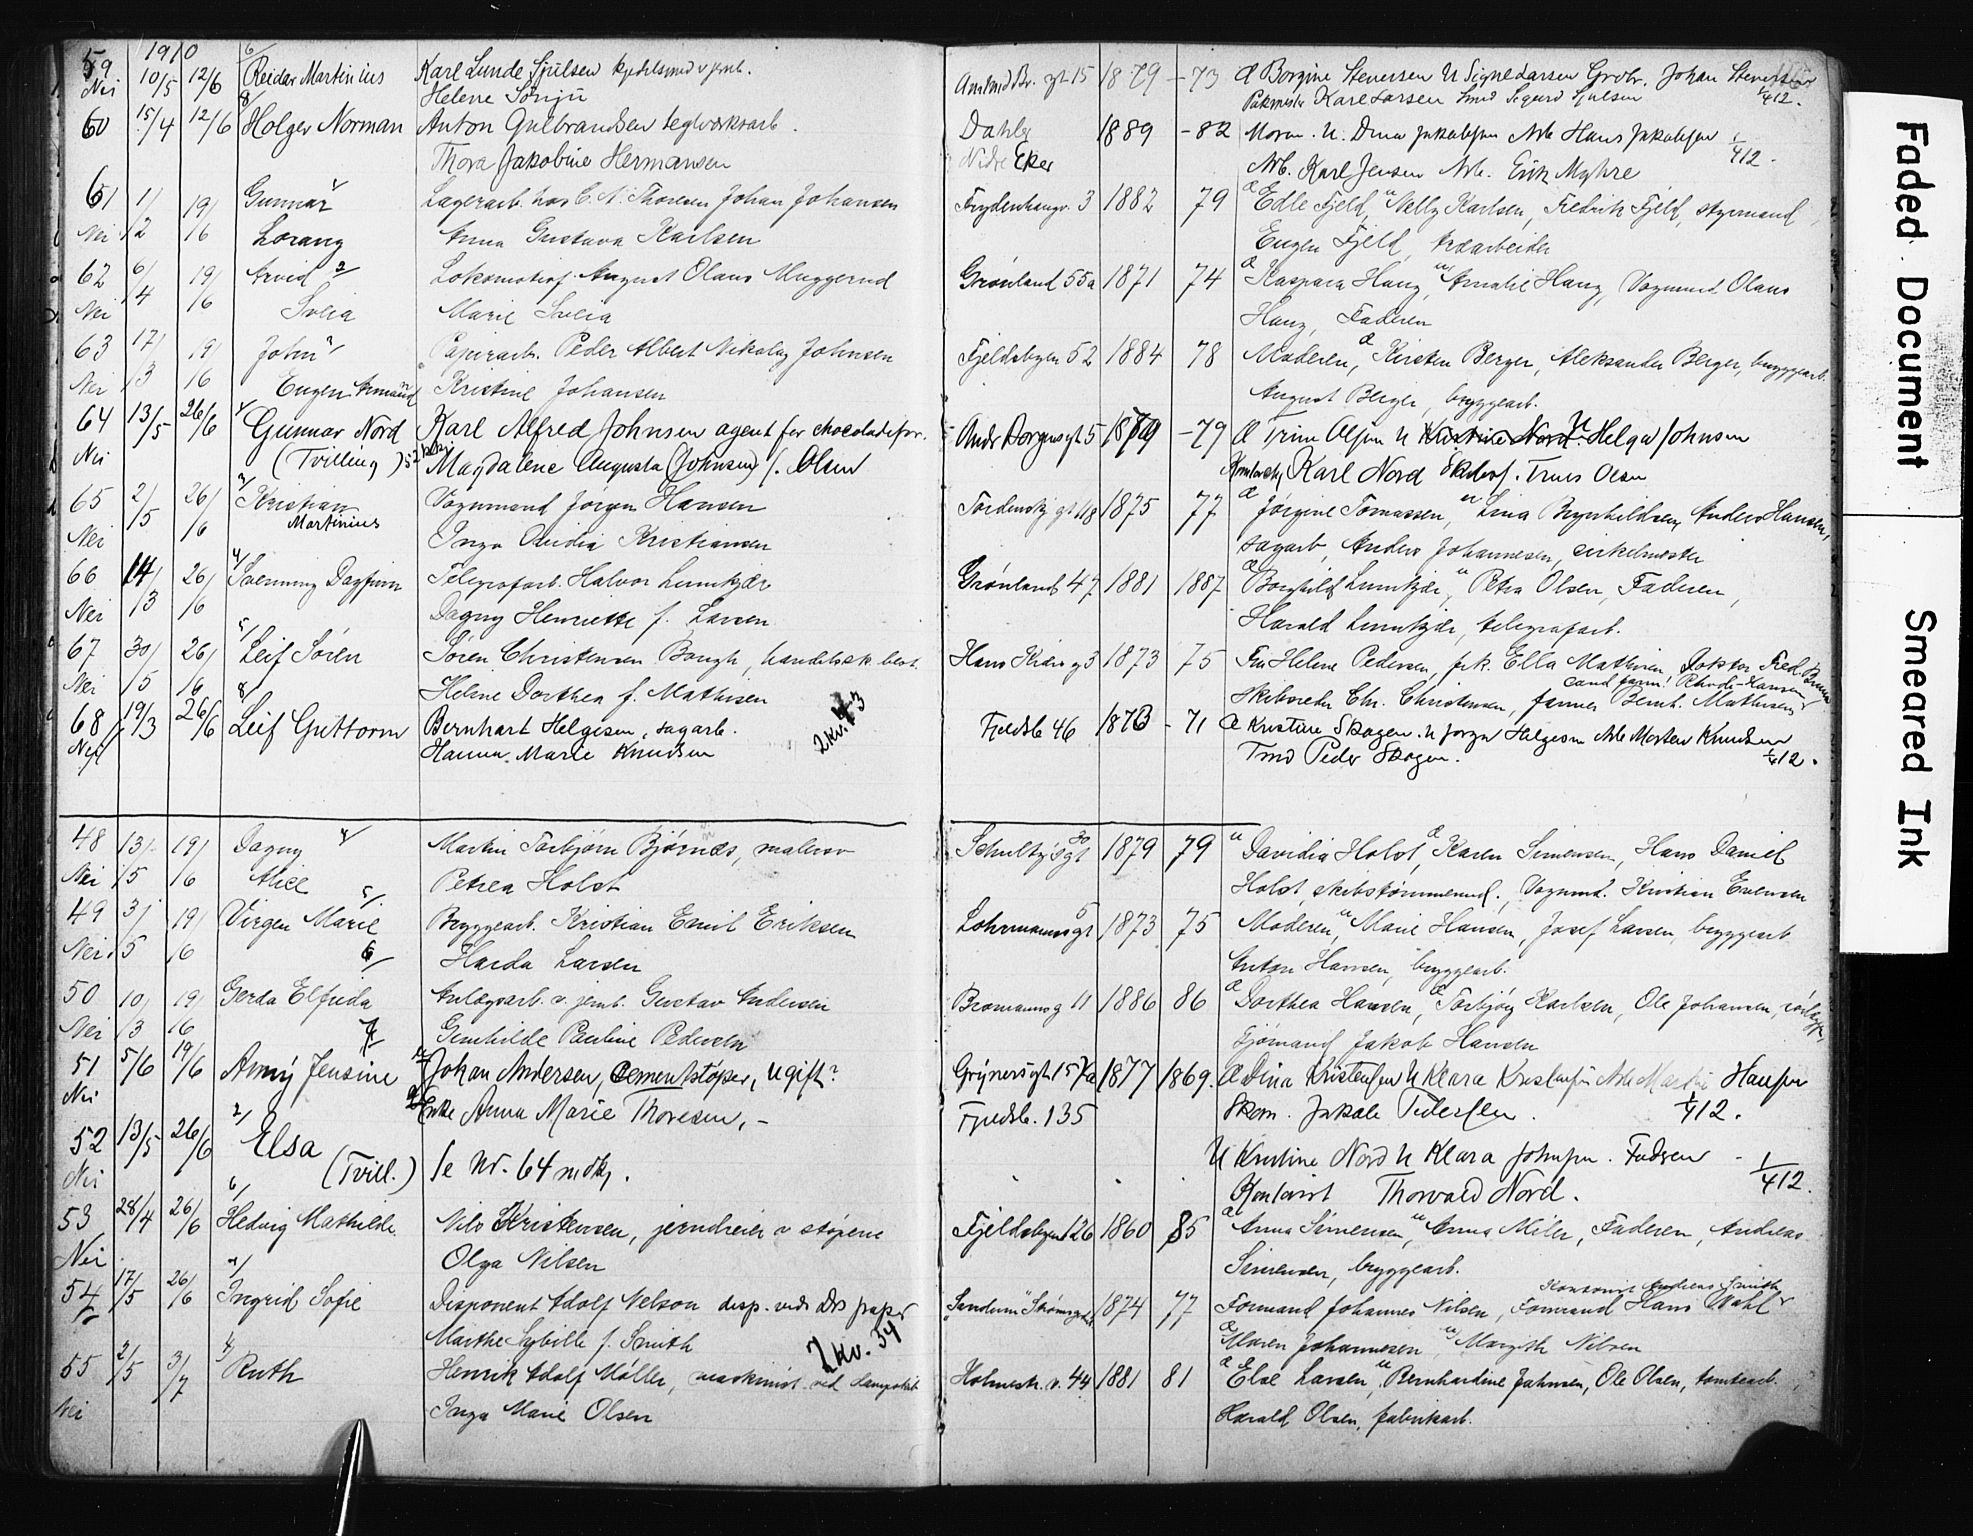 1910
59 10/5 12/6 Reidar Martinius Karl Lunde Sjulsen 1879 - 73 Æ Borgine Stenersen U Signe Larsen Johan Stenersen
Nei Helene Karl Larsen Sigurd Sjulsen 1/4 12.
60 15/4 12/6 Holger Norman Anton Gulbrandsen teglverksarb. Dahler 1889 - 82 U. Dina Jakobsen Arb Hans Jakobsen 1/4 12.
Thora Jakobine Hermansen Nedre Eker Arb. Karl Jensen Arb. Erik Myhre
61 1/2 19/6 Gunnar Lagerarb. hos C. A. Thoresen Johan Johansen Frydenhaugv. 3 1882 79 Æ Edle Fjeld, U Nelly Karlsen, Fredrik Fjeld, styrmand,
Nei Lorang Anna Gustava Karlsen Eugen Fjeld, træarbeider
62 6/4 19/6 Arvid Lokomotivf. August Olaus Muggerud Grønland 55a 1871 74 Æ Kaspara Haug, U Amalie Haug, Vognmand Olaus
Nei Marie Haug, Faderen
63 17/3 19/6 John Papirarb. Peder Albert Nikolay Johnsen Fjeldsbyen 52 1884 78 Moderen, Æ Kirsten Berger, Aleksander Berger, bryggearb.
Nei Eugen Armand Kristine Johansen August Berger, bryggearb.
64 13/5 26/6 Gunnar Nord Karl Alfred Johnsen agent for chocoladefor. 1879 - 79 Æ Trine Olsen U Kristine Nord U Helga Johnsen
Nei (Tvilling) Magdalene Augusta (Johnsen) f. Olsen Karl Nord Olsen
65 2/5 26/6 Kristian Vognmand Jørgen Hansen Tordenskj gt 48 1875 77 Æ Jørgine Tomassen, U Lina Brynhildsen, Anders Hansen,
Nei Martinius Inga Ovidia Kristiansen sagarb, Anders Johannesen, cirkelmester
66 14/3 26/6 Svenning Dagfinn Telegrafarb. Halvor Lunnkjær Grønland 47 1881 1887 Æ Borghild Lunnkjær, U Petra Olsen, Faderen,
Nei Dagny Henriette f. Larsen Harald Lunnkjær, telegrafarb.
67 30/5 26/6 Leif Søren Søren Christensen Bough, handelsek. best. Hans Kiærs g 3 1873 75 Fru Helene Pedersen, frk. Ella Mathisen, Doktor Fred. Bruun
cand farm. Rhode-Hansen
Nei Helene Dorthea f. Mathisen Skibsreder Chr. Christensen, Bernt. Mathisen
68 19/3 26/6 Leif Guttorm Bernhart Helgesen, sagarb. 2kv. 73 Fjeldsb 46 1873 - 71 Æ Kristine Skogen. U Jørgen Helgesen Arb Morten Knudsen
Nei Hanna Marie Knudsen Tmd Peder Skogen. 1/4 12.
48 13/5 19/6 Dagny Martin Torbjørn Bjørnes, malersv Schultz's gt 30 1879 79 U Davidia Holst, Æ Karen Simensen, Hans Daniel
Nei Alice Petrea Holst Holst, skibstømmermd., Vognmd. Kristian Evensen
49 3/5 19/6 Virgen Marie Bryggearb. Kristian Emil Eriksen Lohrmanns gt 5 1873 75 Moderen, U Marie Hansen, Josef Larsen, bryggearb
Nei Harda Larsen Anton Hansen, bryggearb.
50 10/3 19/6 Gerda Elfrida Anlægsarb. v. jernb. Gustav Andersen Bromanns g 11 1886 86 Æ Dorthea Hansen, Æ Torbjørg Karlsen, Ole Johansen,
Nei Gunhilde Pauline Pedersen Sjømand Jakob Hansen
51 5/6 19/6 Anny Jensine Johan Andersen, Cementstøper, Ugift? 1877 1869. Æ Dina Kristensen U Klara Kristensen Arb Martin Hansen
Nei Enke Anna Marie Thoresen, - Fjeldsb. 135 Skom. Jakob Pedersen. 1/4 12.
52 13/5 26/6 Elsa Se Nr. 64 mdkj. U Kristine Nord U Klara Johnsen. Faderen - 1/4 12.
Nei (Tvill.) Kontorist Thorvald Nord.
53 28/4 26/6 Hedvig Mathilde Nils Kristensen, jerndreier v støperi Fjeldsbyen 126 1860 85 Æ Anna Simensen, U Anna Miler, Faderen, Andreas
Nei Olga Nilsen Simensen, bryggearb.
Andreas Smith
54 17/5 26/6 Ingrid Sofie Disponent Adolf Nelson disp. ved Drs papir 1874 77 Formand Johannes Nilsen, Formand Hans Wahl
Marthe Sybille f. Smith 2 kv. 34 Æ Maren Johannesen U Margith Nilsen
55 2/5 3/7 Ruth Henrik Adolf Møller, maskinist ved Holmestr. v. 44 1881 81 Æ Else Larsen, U Bernhardine Johnsen, Ole Olsen, tomtearb.
Nei Inga Marie Olsen Harald Olsen, fabrikarb.
Faded Document
Smeared Ink